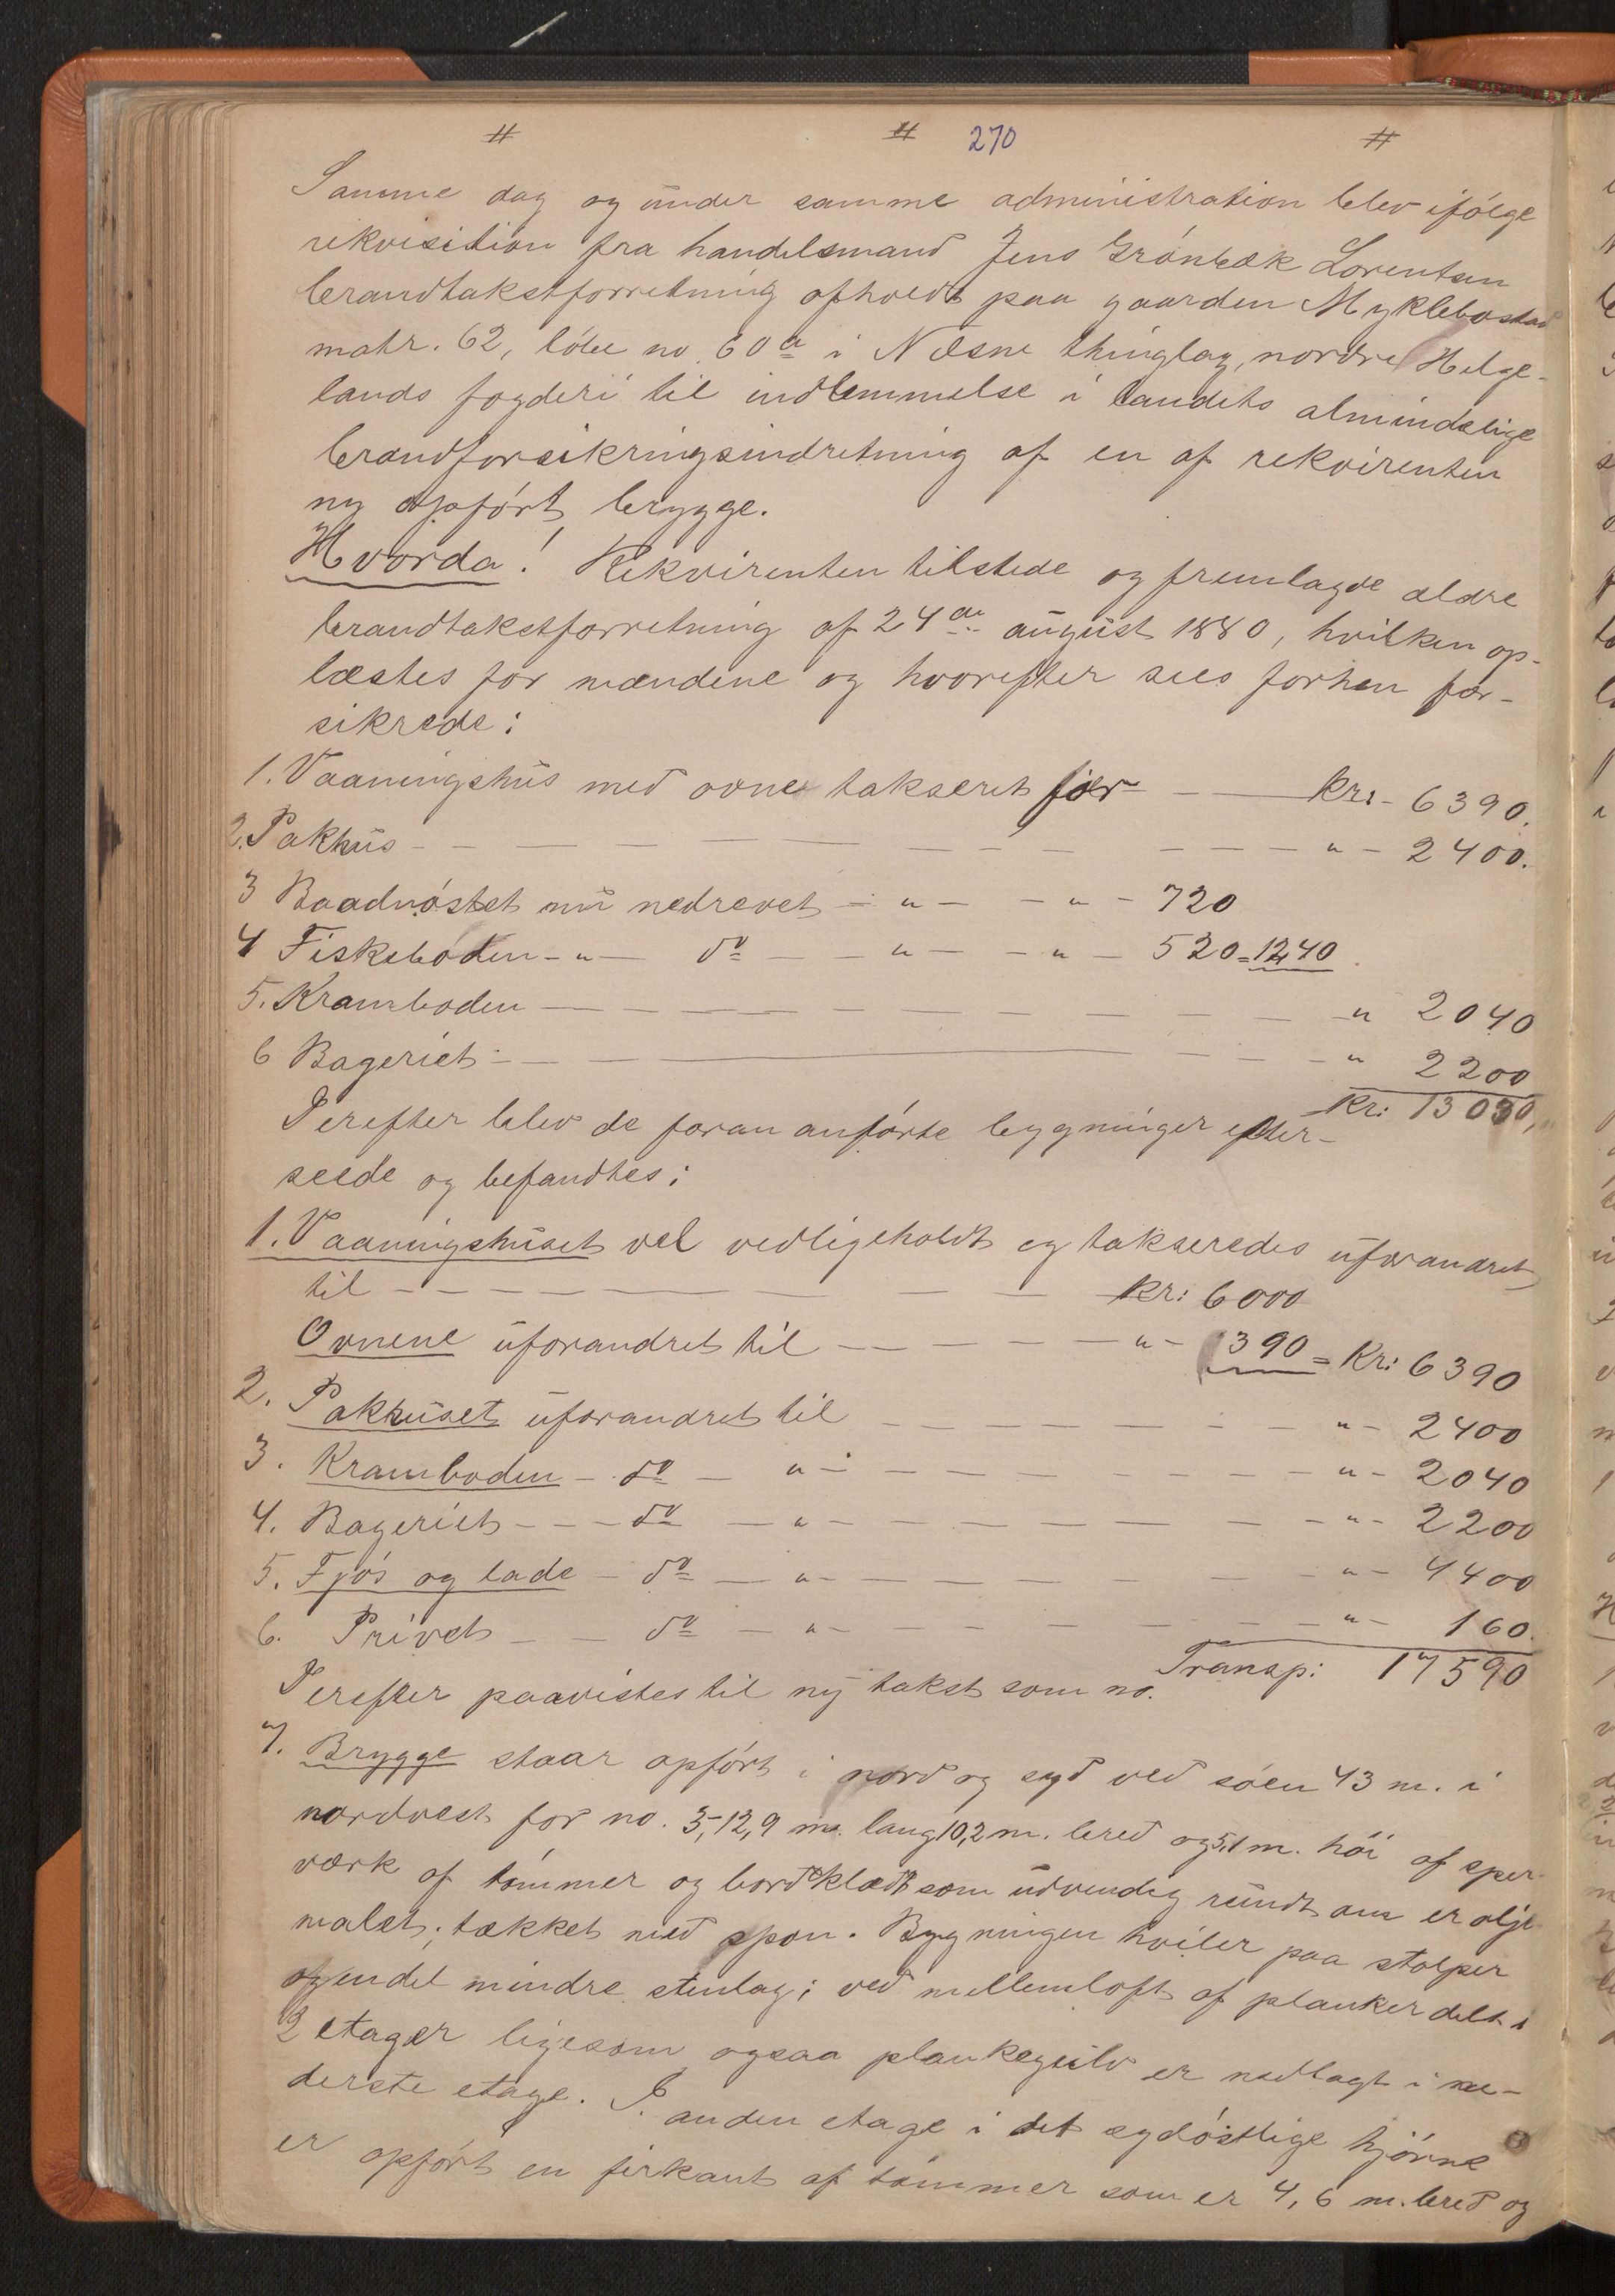 # # 270 #
Samme dag og under samme administration blev ifölge
rekvisition fra handelsmand Jens Grönbæk Lorentsen
brandtakstforretning afholdt paa gaarden Myklebostad
matr. 62, löbe no 60a i Næsne thinglag, nordre Helge-
lands fogderi til indlemmelse i landets almindelige
brandforsikringsindretning af en af rekvirenten
ny opfört brygge.
Hvorda! Rekvirenten tilstede og fremlagde ældre
brandtakstforretning af 24de august 1880, hvilken op-
læstes for mændene og hvorefter sees forhen for-
sikrede:
1. Vaaningshus med ovne takseret for — — kr: - 6390.
2. Pakhus - — — — — — — — — " - 2400.
3 Baadnöstet nu nedrevet - " - - " - 720
4 Fiskeboden - " - do - - " - - " - 520 = 1240
5. Kramboden — — — — — — — — " 2040
6 Bageriet - — — — — — — " 2200
kr: 13030,
Derefter blev de foran anförte bygninger efter-
seede og befandtes:
1. Vaaningshuset vel vedligeholdt og takseredes uforandret
til — — — — — — — kr: 6000
Ovnene uforandret til — — — — " - 390 = Kr: 6390
2. Pakhuset uforandret til — — — — — " - 2400
3. Kramboden - do - " - — — — — — " - 2040
4. Bageriet - - - do - " - — — — — — " - 2200
5. Fjös og lade - do - " - — — — — — " - 4400
6. Privet - - do - " - — — — — — " - 160.
Transp: 17590
Derefter paavistes til ny takst som no.
7. Brygge staar opfört i nord og syd ved söen 43 m. i
nordvest for no. 5, 12,9 m. lang 10,2 m. bred og 5,1 m. höi af sper-
værk af tömmer og bordklædt som udvendig rundt om er olje-
malet; tækket med spon. Bygningen hviler paa stolper
og endel mindre stenlag; ved mellemloft af planker delt i
2 etager ligesom ogsaa plankegulv er nedlagt i ne-
derste etage. I anden etage i det sydöstlige hjörne
er opfört en firkant af tömmer som er 4,6 m. bred og